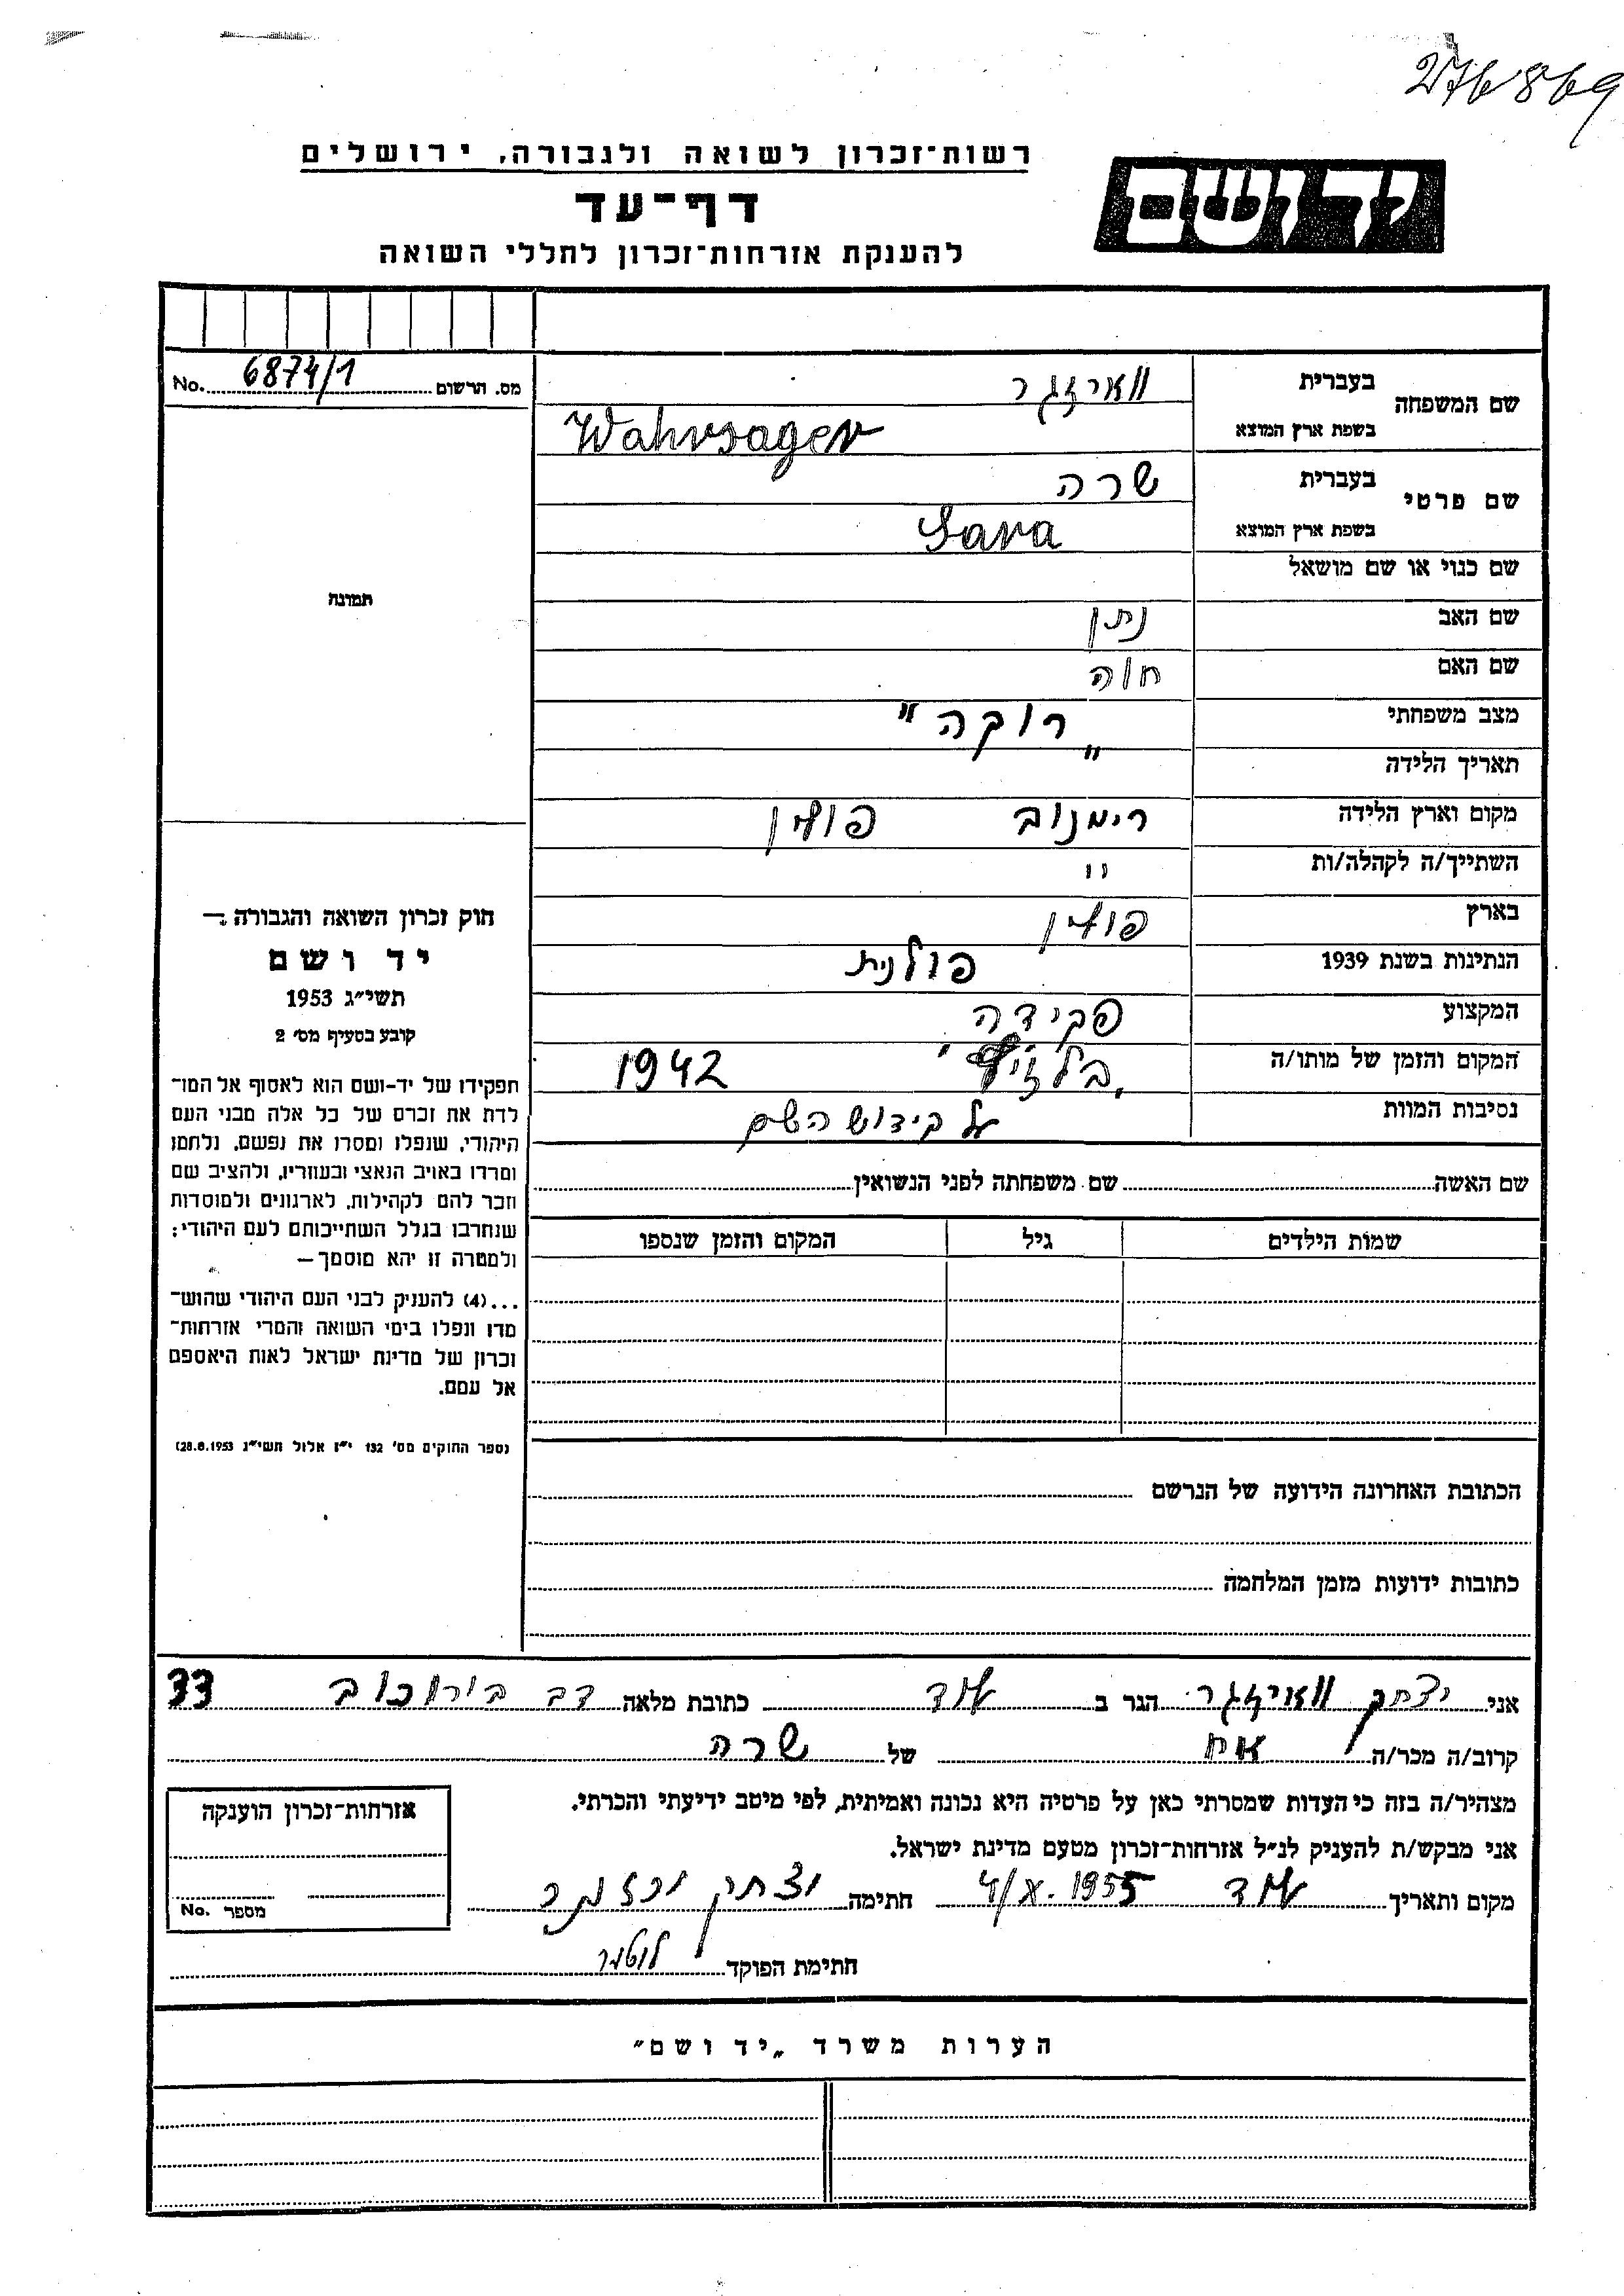 276869
רשות־זכרון לשואה ולגבורה, ירושלים
יד ושם
דף־עד
להענקת אזרחות־זכרון לחללי השואה
שם המשפחה
בעברית
בשפת ארץ המוצא
Wahrsager
מס. הרשום 6874/1 No.
שם פרטי
בעברית שרה
בשפת ארץ המוצא Sara
תמונה
שם כנוי או שם מושאל
שם האב נתן
שם האם חוה
מצב משפחתי „רוקה"
תאריך הלידה
מקום וארץ הלידה רימנוב פולין
השתייך/ה לקהלה/ות "
בארץ פולין
הנתינות בשנת 1939 פולנית
המקצוע פקידה
המקום והזמן של מותו/ה 1942
נסיבות המוות על קידוש השם
חוק זכרון השואה והגבורה —
יד ושם
תשי״ג 1953
קובע בסעיף מס׳ 2
תפקידו של יד-ושם הוא לאסוף אל המו־
לדת את זכרם של כל אלה מבני העם
היהודי, שנפלו ומסרו את נפשם, נלחמו
ומרדו באויב הנאצי ובעוזריו, ולהציב שם
וזכר להם לקהילות, לארגונים ולמוסדות
שנחרבו בגלל השתייכותם לעם היהודי;
ולמטרה זו יהא מוסמך —
...(4) להעניק לבני העם היהודי שהוש־
מדו ונפלו בימי השואה והמרי אזרחות־
זכרון של מדינת ישראל לאות היאספם
אל עמם.
(ספר החוקים מס׳ 132 י״ז אלול תשי״ג 28.8.1953)
שם האשה שם משפחתה לפני הנשואין
שמות הילדים גיל המקום והזמן שנספו
הכתובת האחרונה הידועה של הנרשם
כתובות ידועות מזמן המלחמה
אני יצחק הגר ב כתובת מלאה בורוכוב 33
קרוב/ה מכר/ה אח של שרה
מצהיר/ה בזה כי העדות שמסרתי כאן על פרטיה היא נכונה ואמיתית, לפי מיטב ידיעתי והכרתי.
אני מבקש/ת להעניק לנ״ל אזרחות־זכרון מטעם מדינת ישראל.
מקום ותאריך 4/X. 1955 חתימה
חתימת הפוקד
אזרחות־זכרון הוענקה
מספר No.
הערות משרד „יד ושם"